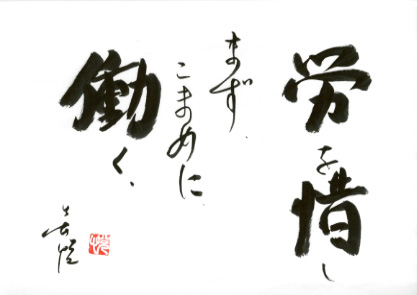 労を惜し
まず、
こまめに
働く、